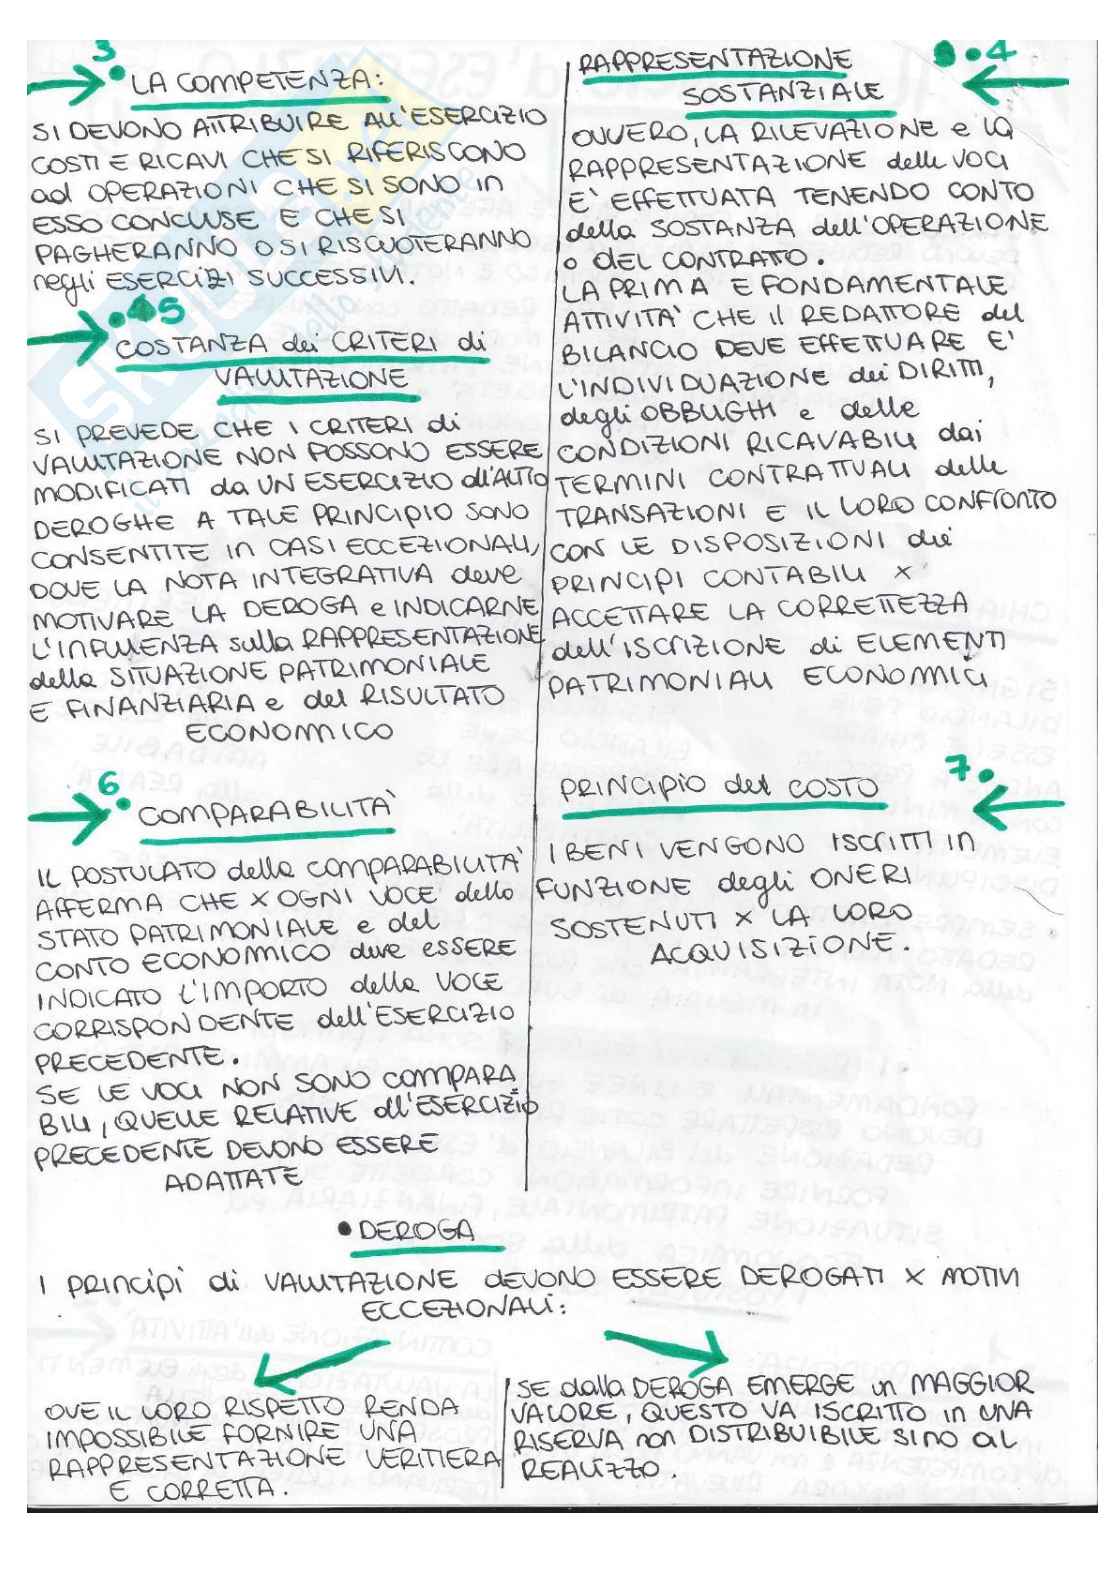 3.
LA COMPETENZA:
SI DEVONO ATTRIBUIRE ALL'ESERCIZIO
COSTI E RICAVI CHE SI RIFERISCONO
ad OPERAZIONI CHE SI SONO in
ESSO CONCLUSE E CHE SI
PAGHERANNO O SI RISCUOTERANNO
negli ESERCIZI SUCCESSIVI.
.5
COSTANZA dei CRITERI di
VALUTAZIONE
SI PREVEDE CHE I CRITERI di
VALUTAZIONE NON POSSONO ESSERE
MODIFICATI da UN ESERCIZIO all'ALTRO
DEROGHE A TALE PRINCIPIO SONO
CONSENTITE in CASI ECCEZIONALI,
DOVE LA NOTA INTEGRATIVA deve
MOTIVARE LA DEROGA e INDICARNE
L'INFLUENZA sulla RAPPRESENTAZIONE
della SITUAZIONE PATRIMONIALE
E FINANZIARIA e del RISULTATO
ECONOMICO
.4
RAPPRESENTAZIONE
SOSTANZIALE
OVVERO, LA RILEVAZIONE e la
RAPPRESENTAZIONE delle VOCI
E' EFFETTUATA TENENDO CONTO
della SOSTANZA dell'OPERAZIONE
o DEL CONTRATTO.
LA PRIMA E FONDAMENTALE
ATTIVITA' CHE il REDATTORE del
BILANCIO DEVE EFFETTUARE E'
L'INDIVIDUAZIONE dei DIRITTI,
degli OBBLIGHI e delle
CONDIZIONI RICAVABILI dai
TERMINI CONTRATTUALI delle
TRANSAZIONI E IL LORO CONFRONTO
CON LE DISPOSIZIONI dei
PRINCIPI CONTABILI X
ACCETTARE LA CORRETTEZZA
dell'ISCRIZIONE di ELEMENTI
PATRIMONIALI ECONOMICI
6.
COMPARABILITA'
IL POSTULATO della COMPARABILITA'
AFFERMA CHE X OGNI VOCE dello
STATO PATRIMONIALE e del
CONTO ECONOMICO deve ESSERE
INDICATO L'IMPORTO della VOCE
CORRISPONDENTE dell'ESERCIZIO
PRECEDENTE.
SE LE VOCI NON SONO COMPARA
BILI, QUELLE RELATIVE all'ESERCIZIO
PRECEDENTE DEVONO ESSERE
ADATTATE
7.
PRINCIPIO del COSTO
I BENI VENGONO ISCRITTI in
FUNZIONE degli ONERI
SOSTENUTI X LA LORO
ACQUISIZIONE.
• DEROGA
I PRINCIPI di VALUTAZIONE dEVONO ESSERE DEROGATI X MOTIVI
ECCEZIONALI:
OVE IL LORO RISPETTO RENDA
IMPOSSIBILE FORNIRE UNA
RAPPRESENTAZIONE VERITIERA
E CORRETTA.
SE dalla DEROGA EMERGE un MAGGIOR
VALORE, QUESTO VA ISCRITTO in UNA
RISERVA non DISTRIBUIBILE sino al
REALIZZO.